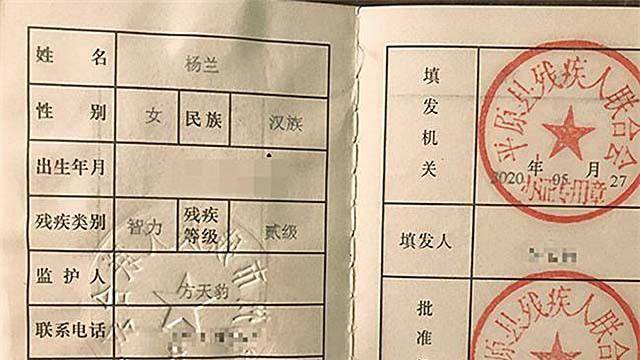 姓 名 杨兰
性 别 女 民族 汉族
出生年月
残疾类别 智力 残疾等级 贰级
监 护 人 方天豹
联系电话
填发机关
平原县残疾人联合会
2020 年 05 月 27
办证专用章
填发人
批准
平原县残疾人联合会